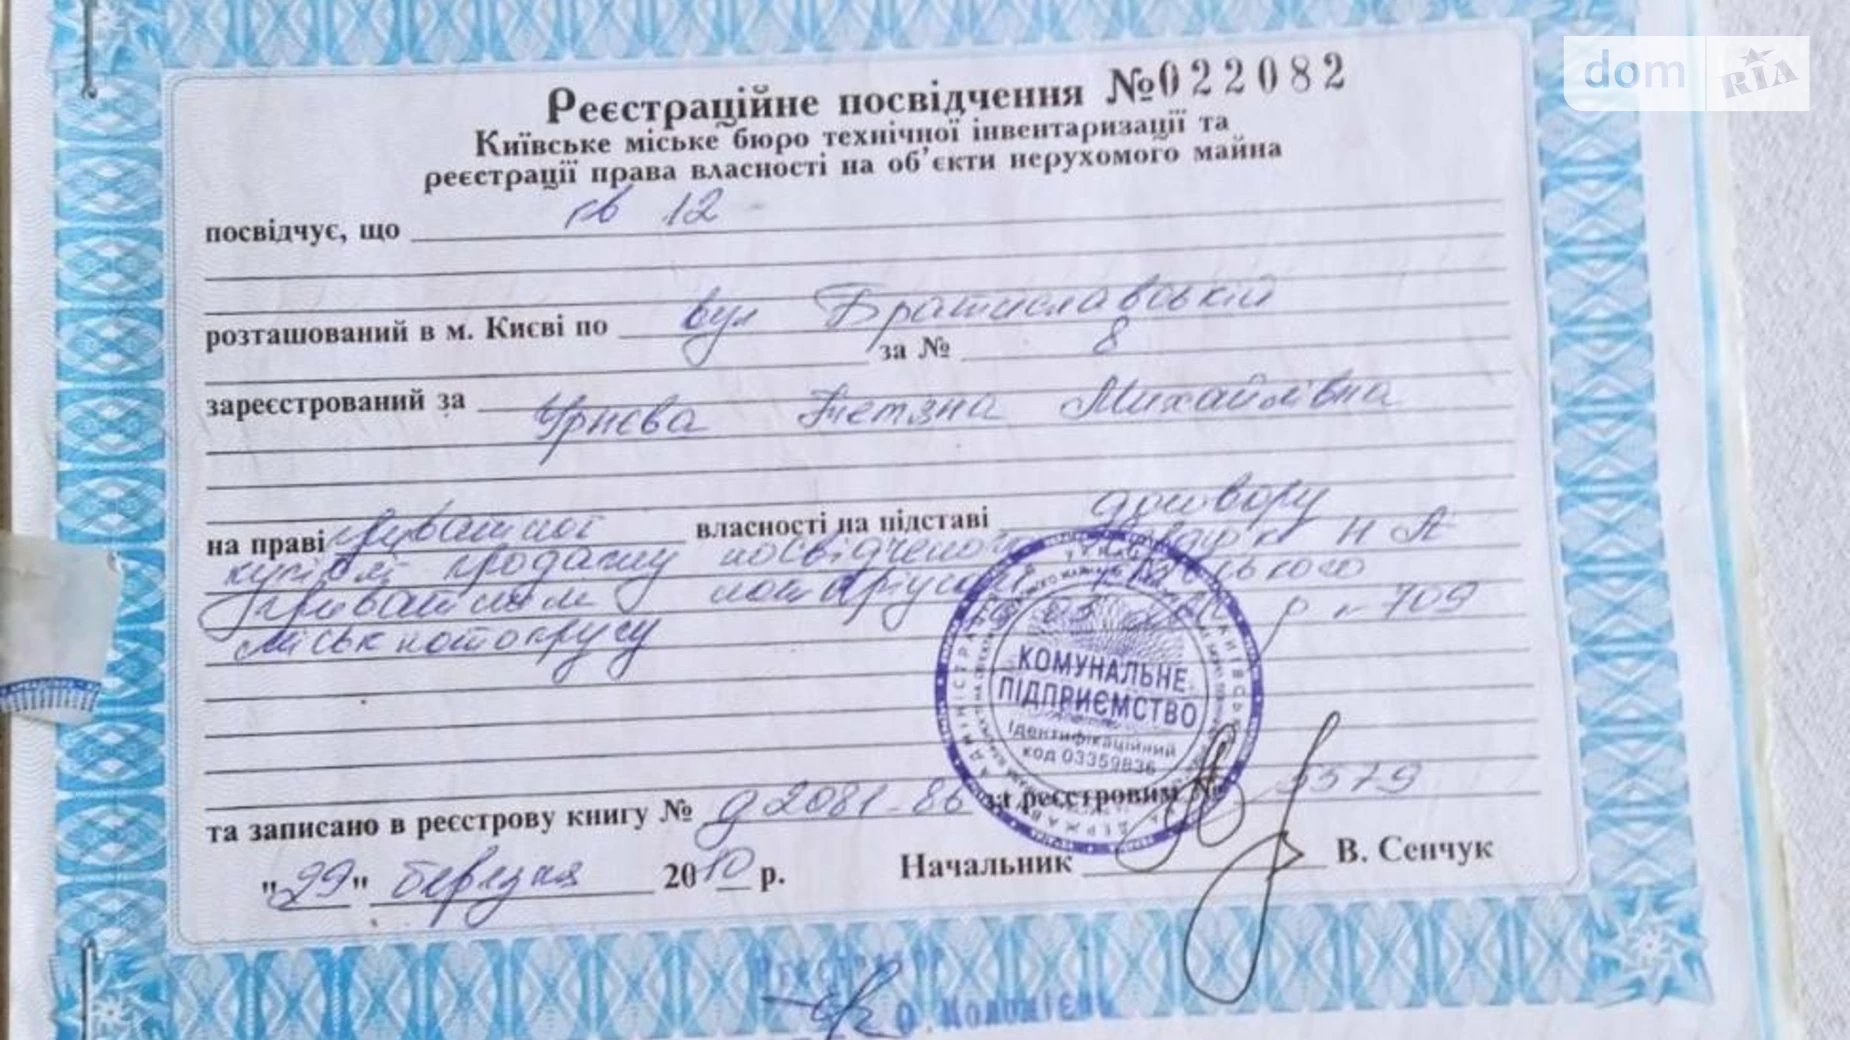 dom RIA
Реєстраційне посвідчення №022082
Київське міське бюро технічної інвентаризації та
реєстрації права власності на об'єкти нерухомого майна
посвідчує, що кв 12
розташований в м. Києві по вул Братиславській
за № 8
зареєстрований за Тетяна Михайлівна
на праві приватної власності на підставі договору
купівлі продажу посвідченого Н А
приватним нотаріусом р н 709
міськ нотокругу
КОМУНАЛЬНЕ
ПІДПРИЄМСТВО
Ідентифікаційний
код 03359836
та записано в реєстрову книгу № д 2081-86 за реєстровим №
"29" березня 2010 р. Начальник В. Сенчук
Реєстратор